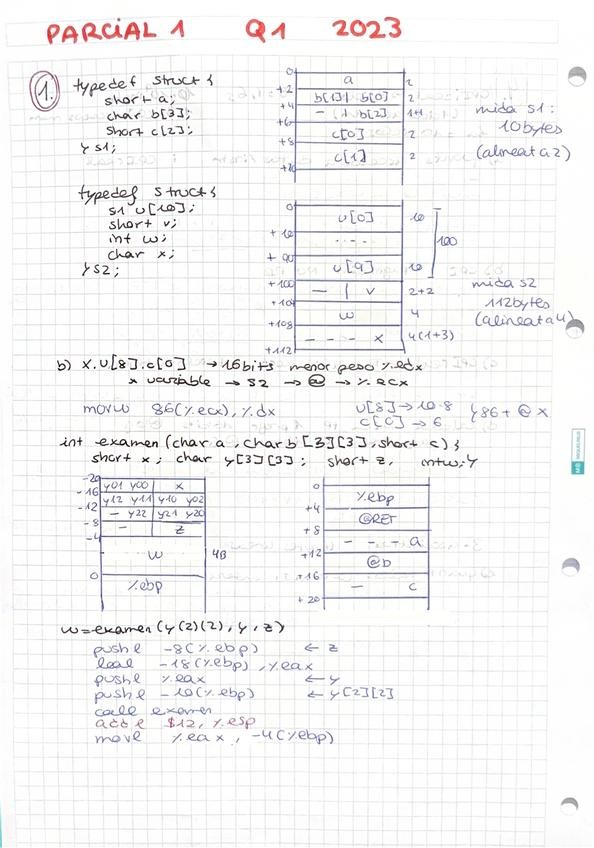 PARCIAL 1 Q1 2023
1.
typedef struct {
short a;
char b[3];
short c[2];
} s1;
0
a
2
+2
b[1] | b[0]
2
+4
- | b[2]
1+1
+6
c[0]
2
+8
c[1]
2
+10
mida s1:
10bytes
(alineat a 2)
typedef struct {
s1 u[10];
short v;
int w;
char x;
} s2;
0
u[0]
10
+10
...
+90
u[9]
10
100
+100
- | v
2+2
+104
w
4
+108
- - - x
4(1+3)
+112
mida s2
112bytes
(alineat a 4)
b) x.u[8].c[0] → 16bits menor peso %edx
x variable → s2 → @ → %ecx
movw 86(%ecx), %dx
u[8] → 10·8
c[0] → 6
} 86 + @ x
int examen (char a, char b[3][3], short c) {
short x; char y[3][3]; short z, int w; }
-20
y01 y00 x
-16
y12 y11 y10 y02
-12
- y22 y21 y20
-8
- z
-4
w
4B
0
%ebp
%ebp
+4
@RET
+8
- - - a
+12
@b
+16
- c
+20
w=examen(y(2)(2), y, z)
pushl -8(%ebp) ← z
leal -18(%ebp), %eax
pushl %eax ← y
pushl -10(%ebp) ← y[2][2]
call examen
addl $12, %esp
movl %eax, -4(%ebp)
MIQUELRIUS